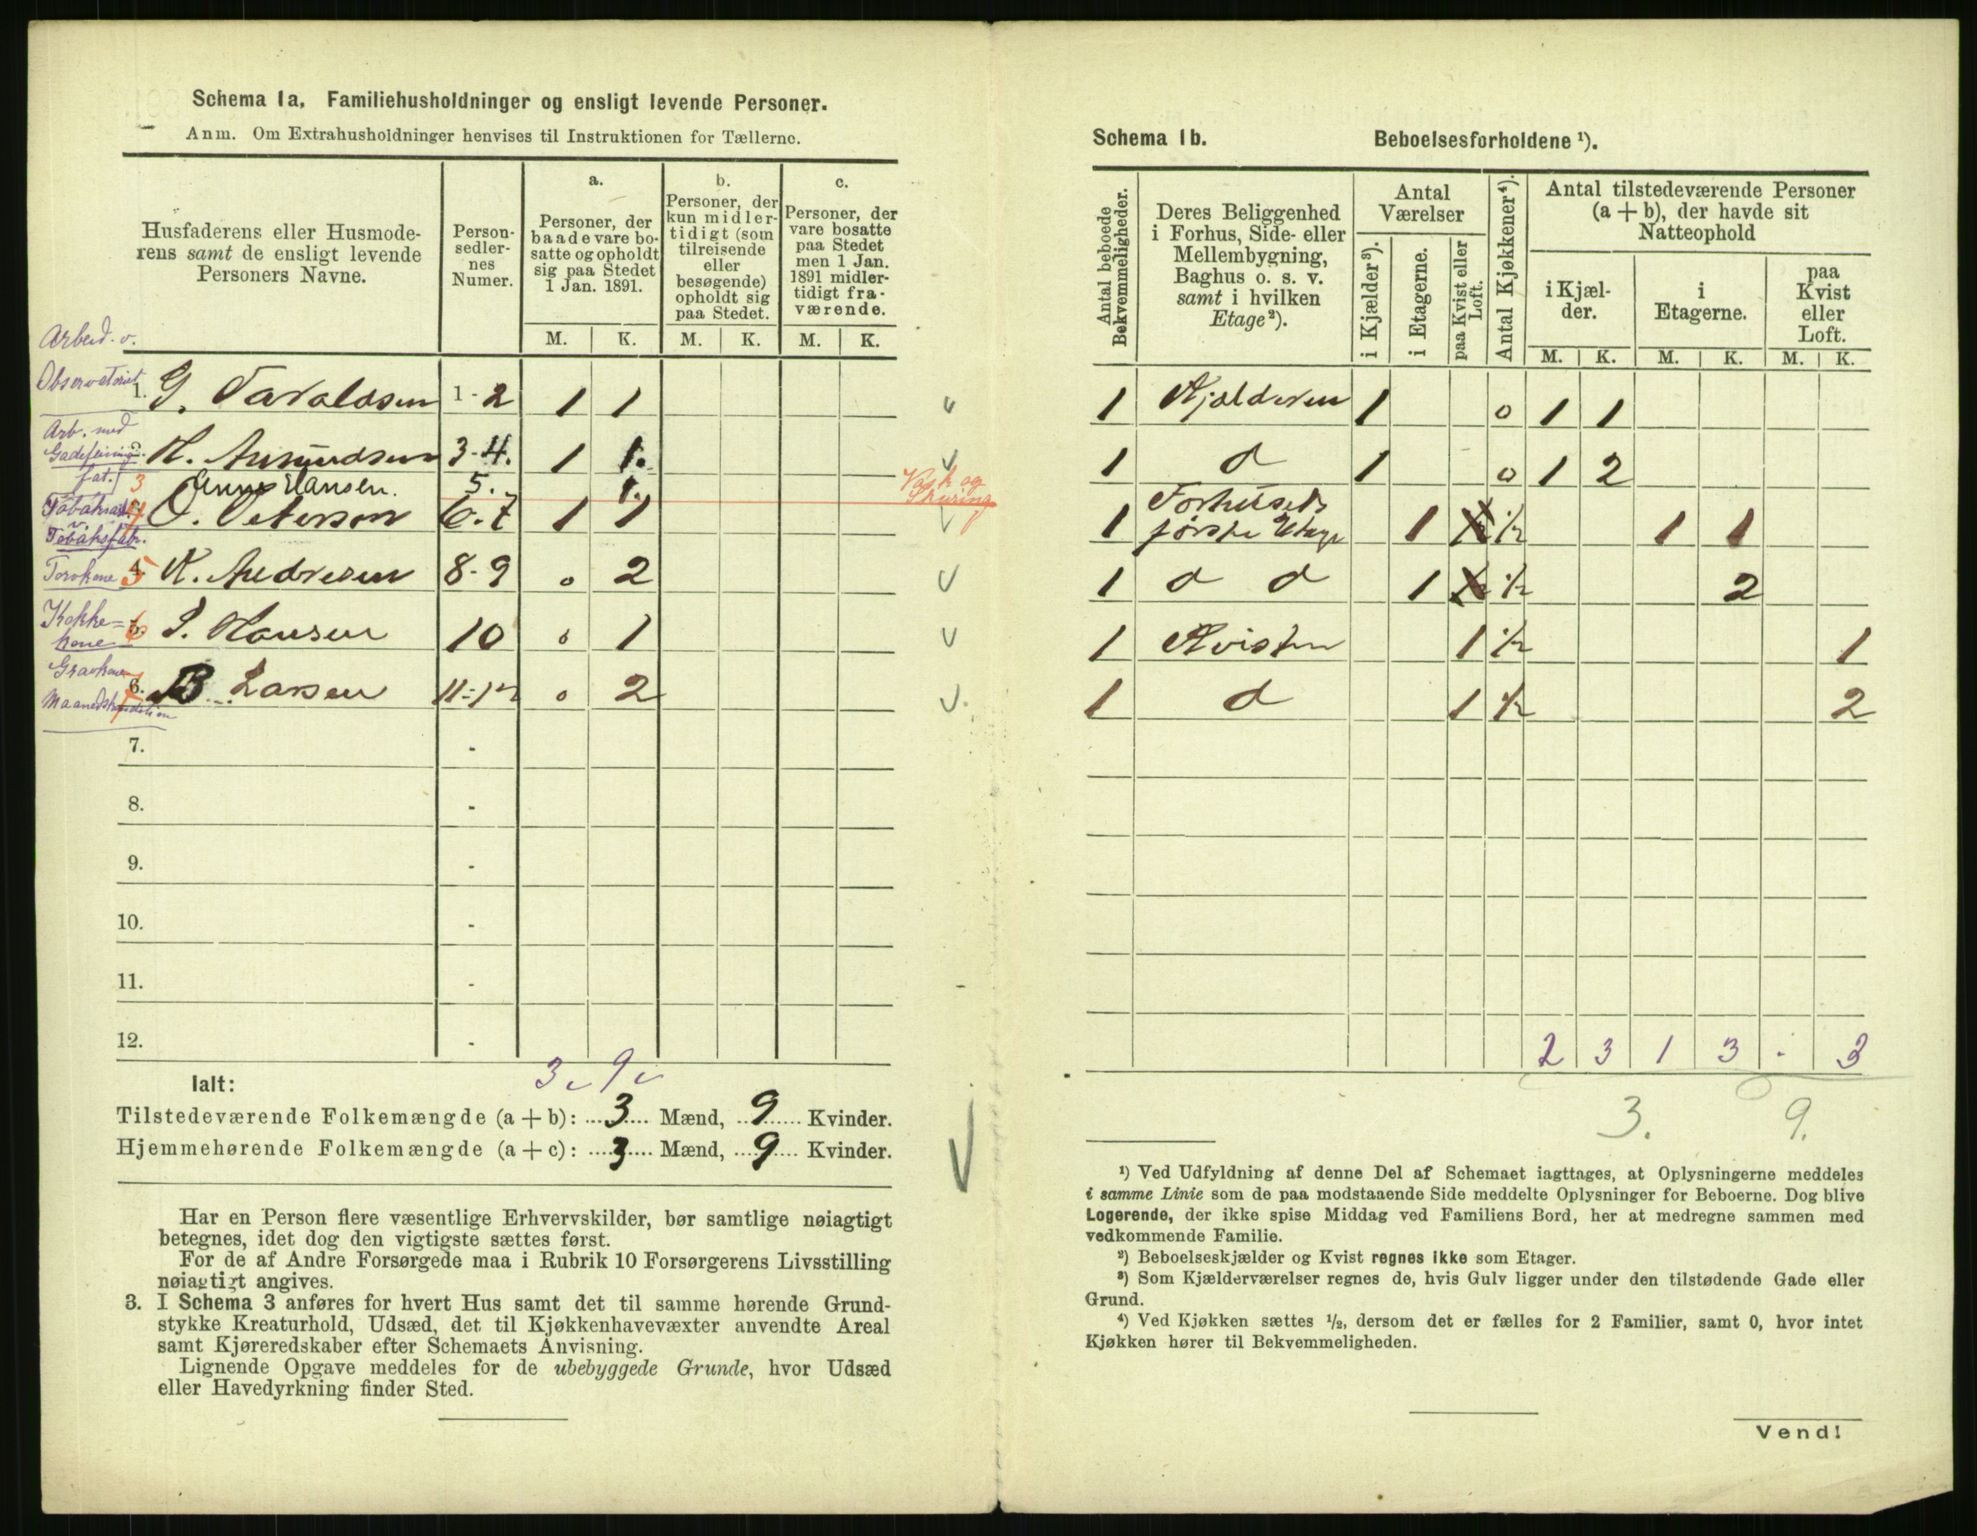 Schema 1a, Familiehusholdninger og ensligt levende Personer.
Anm. Om Extrahusholdninger henvises til Instruktionen for Tællerne.
Husfaderens eller Husmode-
rens samt de ensligt levende
Personers Navne.
Person-
sedler-
nes
Numer.
a.
Personer, der
baade vare bo-
satte og opholdt
sig paa Stedet
1 Jan. 1891.
b.
Personer, der
kun midler-
tidigt (som
tilreisende
eller
besøgende)
opholdt sig
paa Stedet.
c.
Personer, der
vare bosatte
paa Stedet
men 1 Jan.
1891 midler-
tidigt fra-
værende.
M. K. M. K. M. K.
Arbeid. v.
Observatoriet
1. G. Taraldsen 1-2 1 1
Arb. med
Gadefeining
fat.
2. H. Asmundsen 3-4. 1 1.
3 Anne Hansen. 5. 1. Vask og
Skuring
4 O. Peterson 6.7 1 1
v.
Tobaksfabr.
Torvkone 5 K. Andresen 8-9 0 2
Kokke=
kone 6 S. Hansen 10 0 1
6. B. Larsen 11-12 0 2
7. -
8. -
9. -
10. -
11. -
12. -
3 9
Ialt:
Tilstedeværende Folkemængde (a + b): 3 Mænd, 9 Kvinder.
Hjemmehørende Folkemængde (a + c): 3 Mænd, 9 Kvinder.
Har en Person flere væsentlige Erhvervskilder, bør samtlige nøiagtigt
betegnes, idet dog den vigtigste sættes først.
For de af Andre Forsørgede maa i Rubrik 10 Forsørgerens Livsstilling
nøiagtigt angives.
3. I Schema 3 anføres for hvert Hus samt det til samme hørende Grund-
stykke Kreaturhold, Udsæd, det til Kjøkkenhavevæxter anvendte Areal
samt Kjøreredskaber efter Schemaets Anvisning.
Lignende Opgave meddeles for de ubebyggede Grunde, hvor Udsæd
eller Havedyrkning finder Sted.
Schema 1b. Beboelsesforholdene ¹).
Antal beboede
Bekvemmeligheder.
Deres Beliggenhed
i Forhus, Side- eller
Mellembygning,
Baghus o. s. v.
samt i hvilken
Etage²).
Antal
Værelser
i Kjælder³).
i Etagerne.
paa Kvist eller
Loft.
Antal Kjøkkener⁴).
Antal tilstedeværende Personer
(a + b), der havde sit
Natteophold
i Kjæl-
der.
i
Etagerne.
paa
Kvist
eller
Loft.
M. K. M. K. M. K.
1 Kjælderen 1 0 1 1
1 d 1 0 1 2
1 Forhusets
første Etage 1 ½ 1 1
1 d d 1 ½ 2
1 Kvisten 1 ½ 1
1 d 1 ½ 2
2 3 1 3 - 3
3. 9.
¹) Ved Udfyldning af denne Del af Schemaet iagttages, at Oplysningerne meddeles
i samme Linie som de paa modstaaende Side meddelte Oplysninger for Beboerne. Dog blive
Logerende, der ikke spise Middag ved Familiens Bord, her at medregne sammen med
vedkommende Familie.
²) Beboelseskjælder og Kvist regnes ikke som Etager.
³) Som Kjælderværelser regnes de, hvis Gulv ligger under den tilstødende Gade eller
Grund.
⁴) Ved Kjøkken sættes ½, dersom det er fælles for 2 Familier, samt 0, hvor intet
Kjøkken hører til Bekvemmeligheden.
Vend!